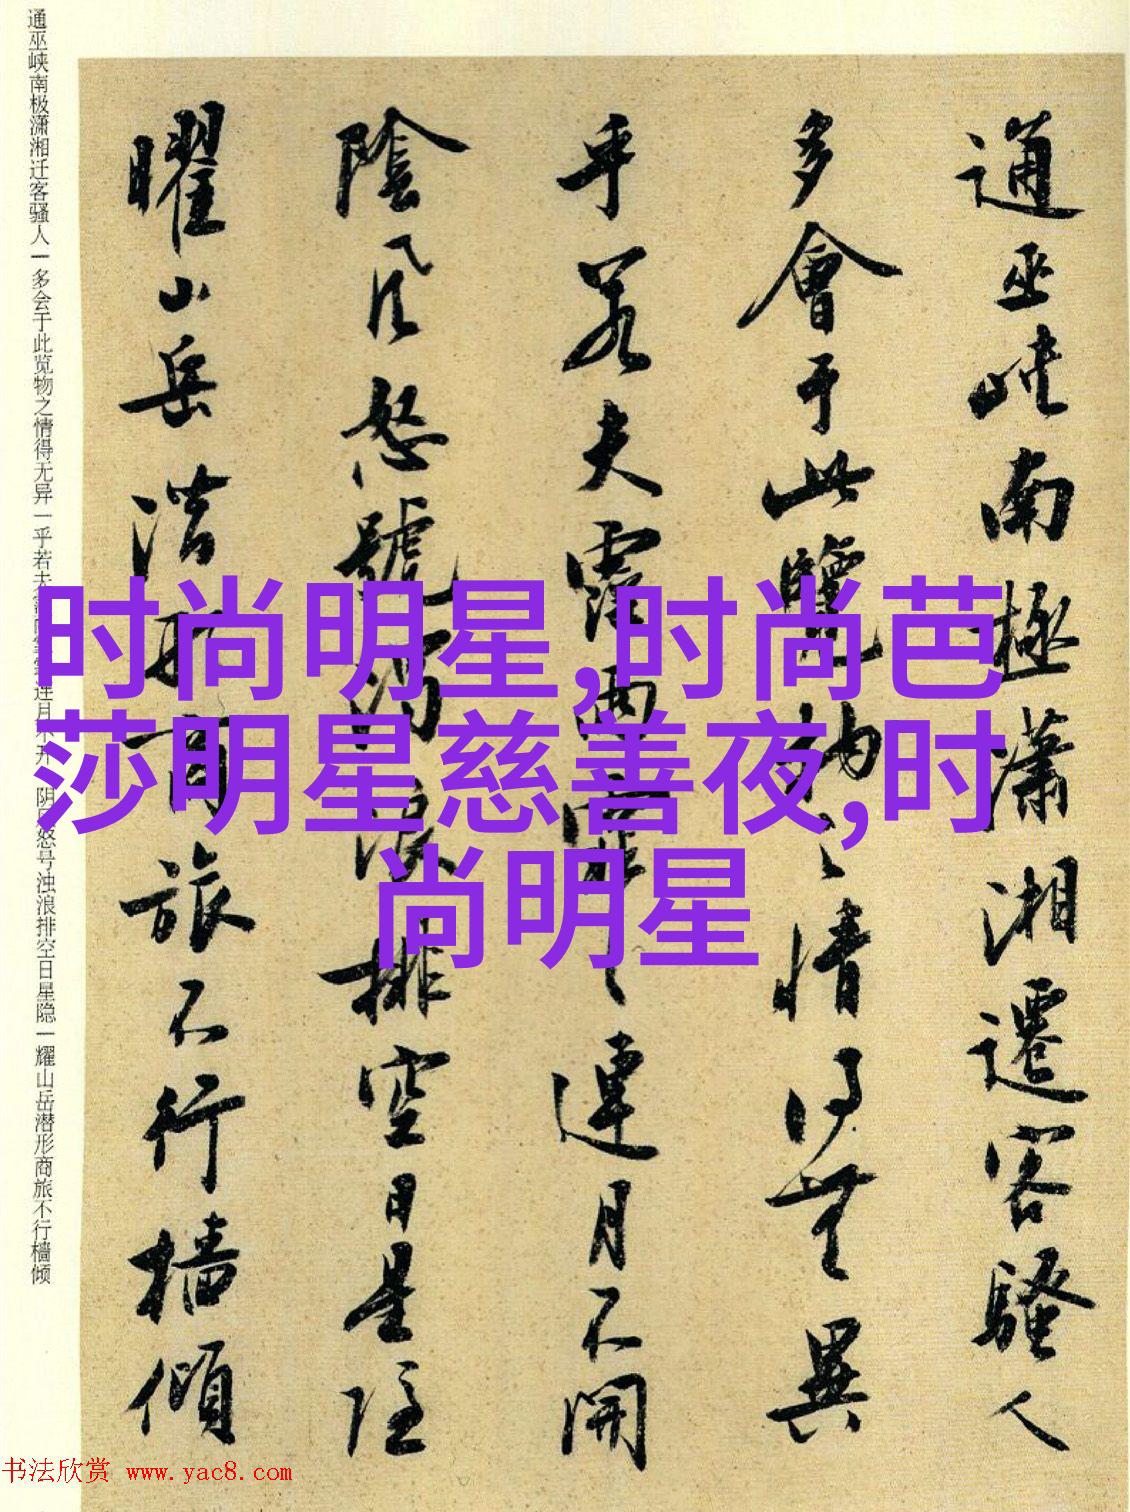 通巫峡南極瀟湘遷客騷人
多會于此覽物之情得無異
乎若夫霪雨霏霏連月不開
陰風怒號濁浪排空日星隱
曜山岳潜形商旅不行檣傾
通巫峡南极潇湘迁客骚人一多会于此览物之情得无异一乎若夫
连月不开
阴风怒号浊浪排空日星隐一耀山岳潜形商旅不行樯倾
时尚明星,时尚芭
莎明星慈善夜,时
尚明星
书法欣赏 www.yac8.com